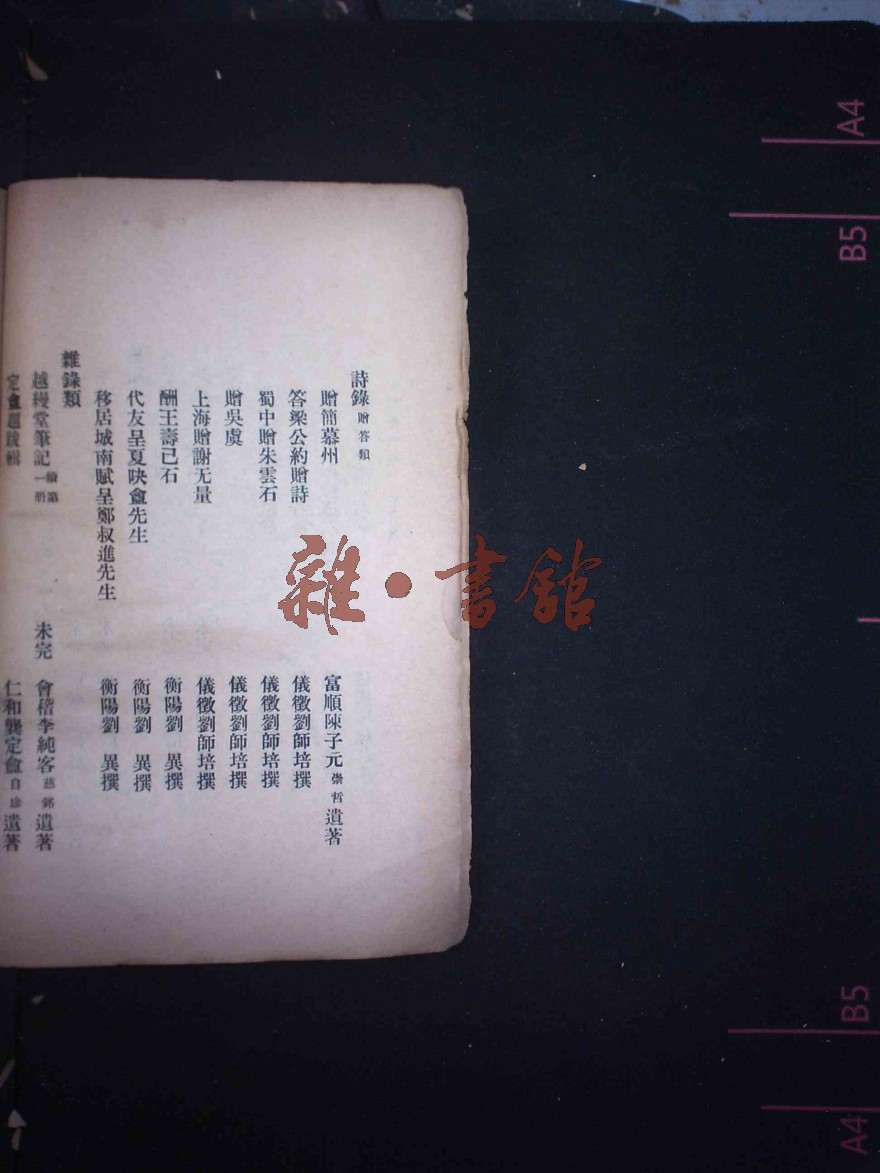 詩錄 贈答類
贈簡慕州 富順陳子元 崇哲 遺著
答梁公約贈詩 儀徵劉師培撰
蜀中贈朱雲石 儀徵劉師培撰
贈吳虞 儀徵劉師培撰
上海贈謝无量 儀徵劉師培撰
酬王壽已石 衡陽劉 異撰
代友呈夏映盦先生 衡陽劉 異撰
移居城南賦呈鄭叔進先生 衡陽劉 異撰
雜錄類
越縵堂筆記 續第一册 未完 會稽李純客 慈銘 遺著
定盦題跋輯 仁和龔定盦 自珍 遺著
雜·書館
A4
B5
B5
A4